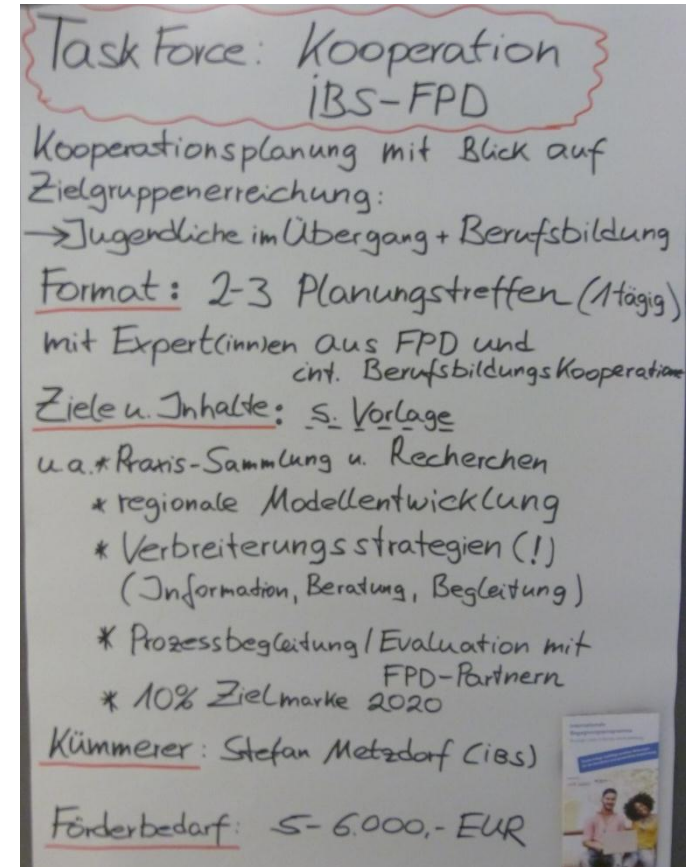 Task Force: Kooperation
iBS-FPD
Kooperationsplanung mit Blick auf
Zielgruppenerreichung:
→ Jugendliche im Übergang + Berufsbildung
Format: 2-3 Planungstreffen (1tägig)
mit Expert(inn)en aus FPD und
int. Berufsbildungskooperation
Ziele u. Inhalte: s. Vorlage
u.a. * Praxis-Sammlung u. Recherchen
* regionale Modellentwicklung
* Verbreiterungsstrategien (!)
(Information, Beratung, Begleitung)
* Prozessbegleitung/Evaluation mit
FPD-Partnern
* 10% Zielmarke 2020
Kümmerer: Stefan Metzdorf (iBS)
Förderbedarf: 5-6.000,- EUR